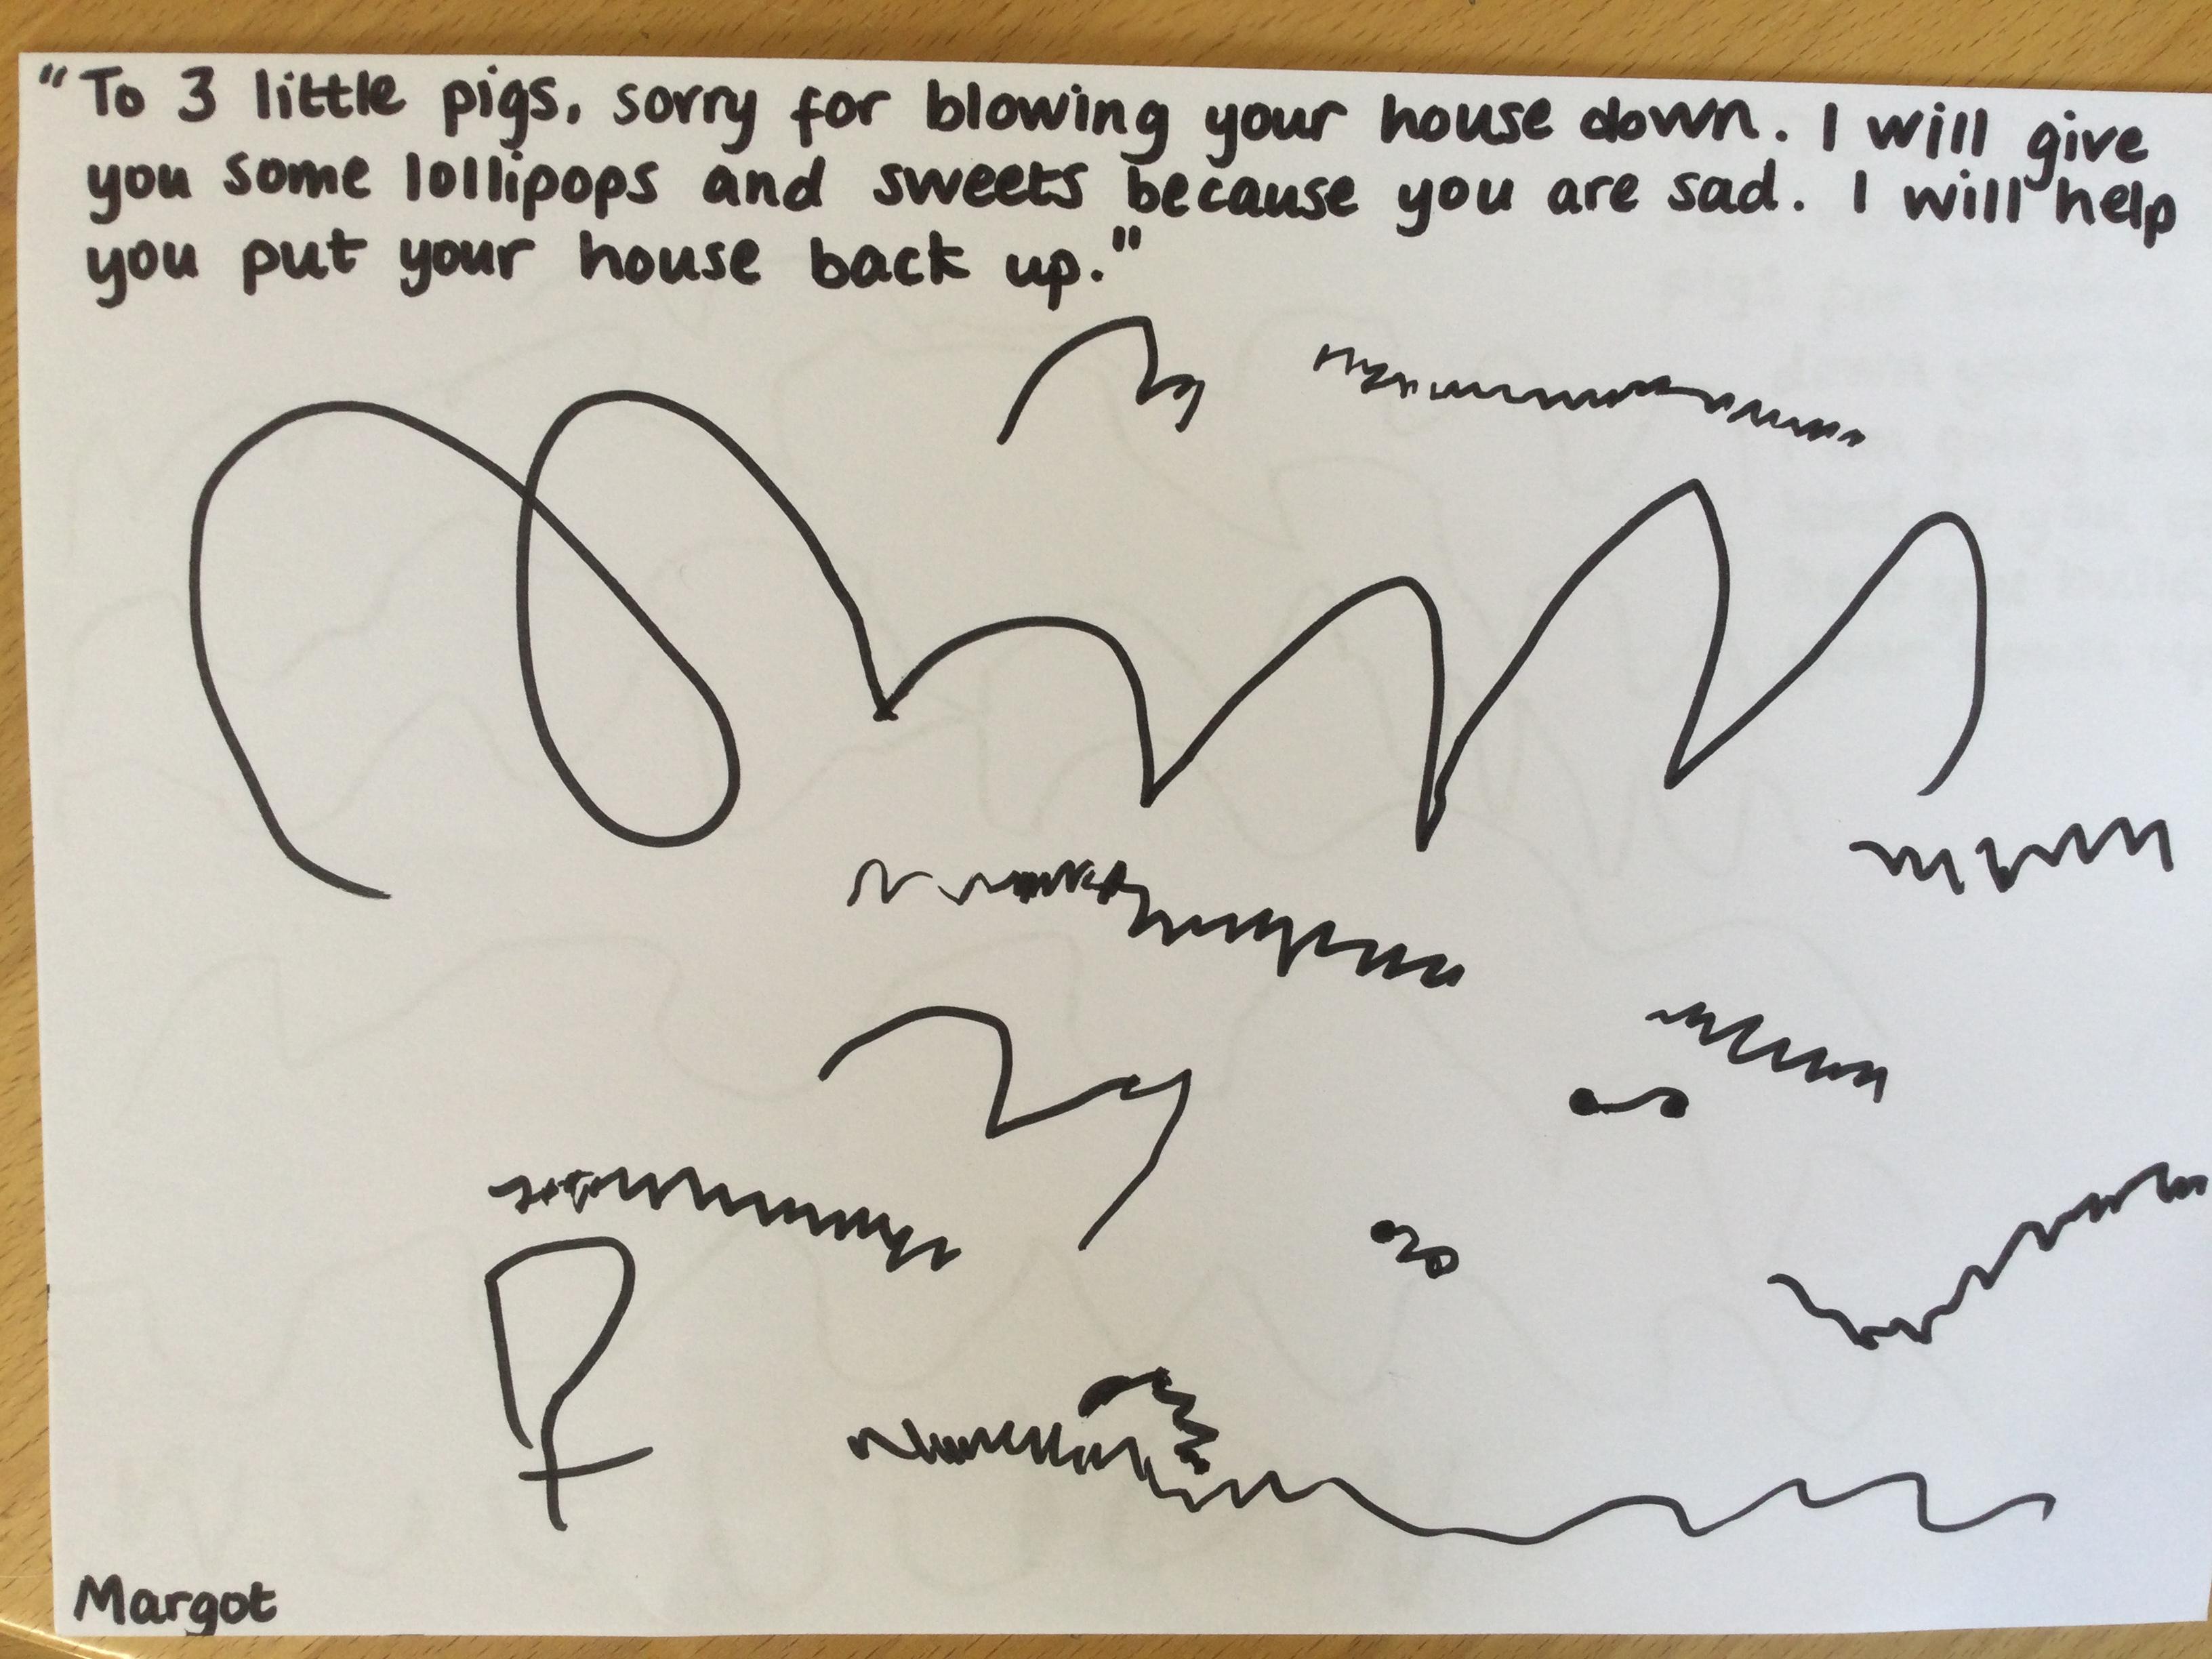 "To 3 little pigs, sorry for blowing your house down. I will give
you some lollipops and sweets because you are sad. I will help
you put your house back up."
Margot